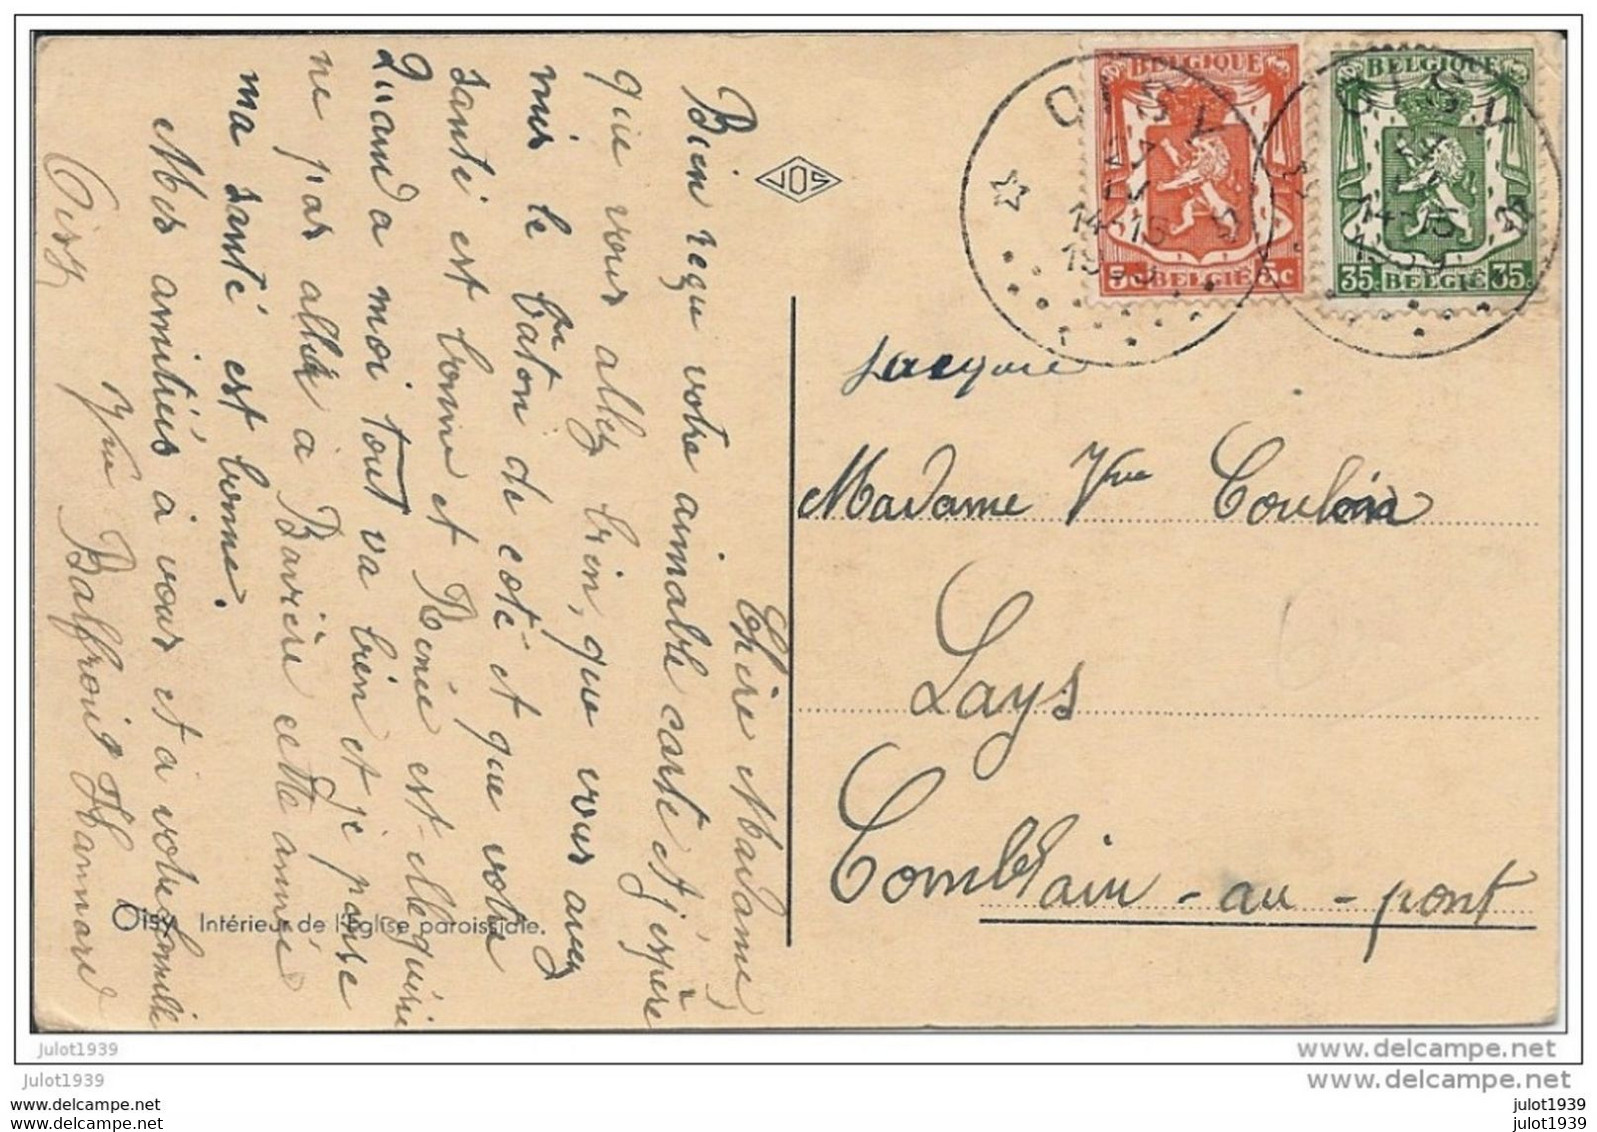 Chère Madame,
Bien reçu votre aimable carte et j'espère
que vous allez bien, que vous avez
mis le baton de coté et que votre
santé est bonne et Renée est-elle guérie
Quand a moi tout va bien et je pense
ne pas allée à Bavière cette année
ma santé est bonne.
Mes amitiés à vous et à votre famille
Vve Balfroid Hannard
Oisy
VOS
Oisy. Intérieur de l'Eglise paroissiale.
BELGIQUE
5c BELGIË 5c
BELGIQUE
35c BELGIË 35c
OISY
14-15
OISY
14-15
1939
Jacques
Madame Vve Coulon
Lays
Comblain-au-pont
julot1939
julot1939
www.delcampe.net
www.delcampe.net
www.delcampe.net
www.delcampe.net
julot1939
julot1939